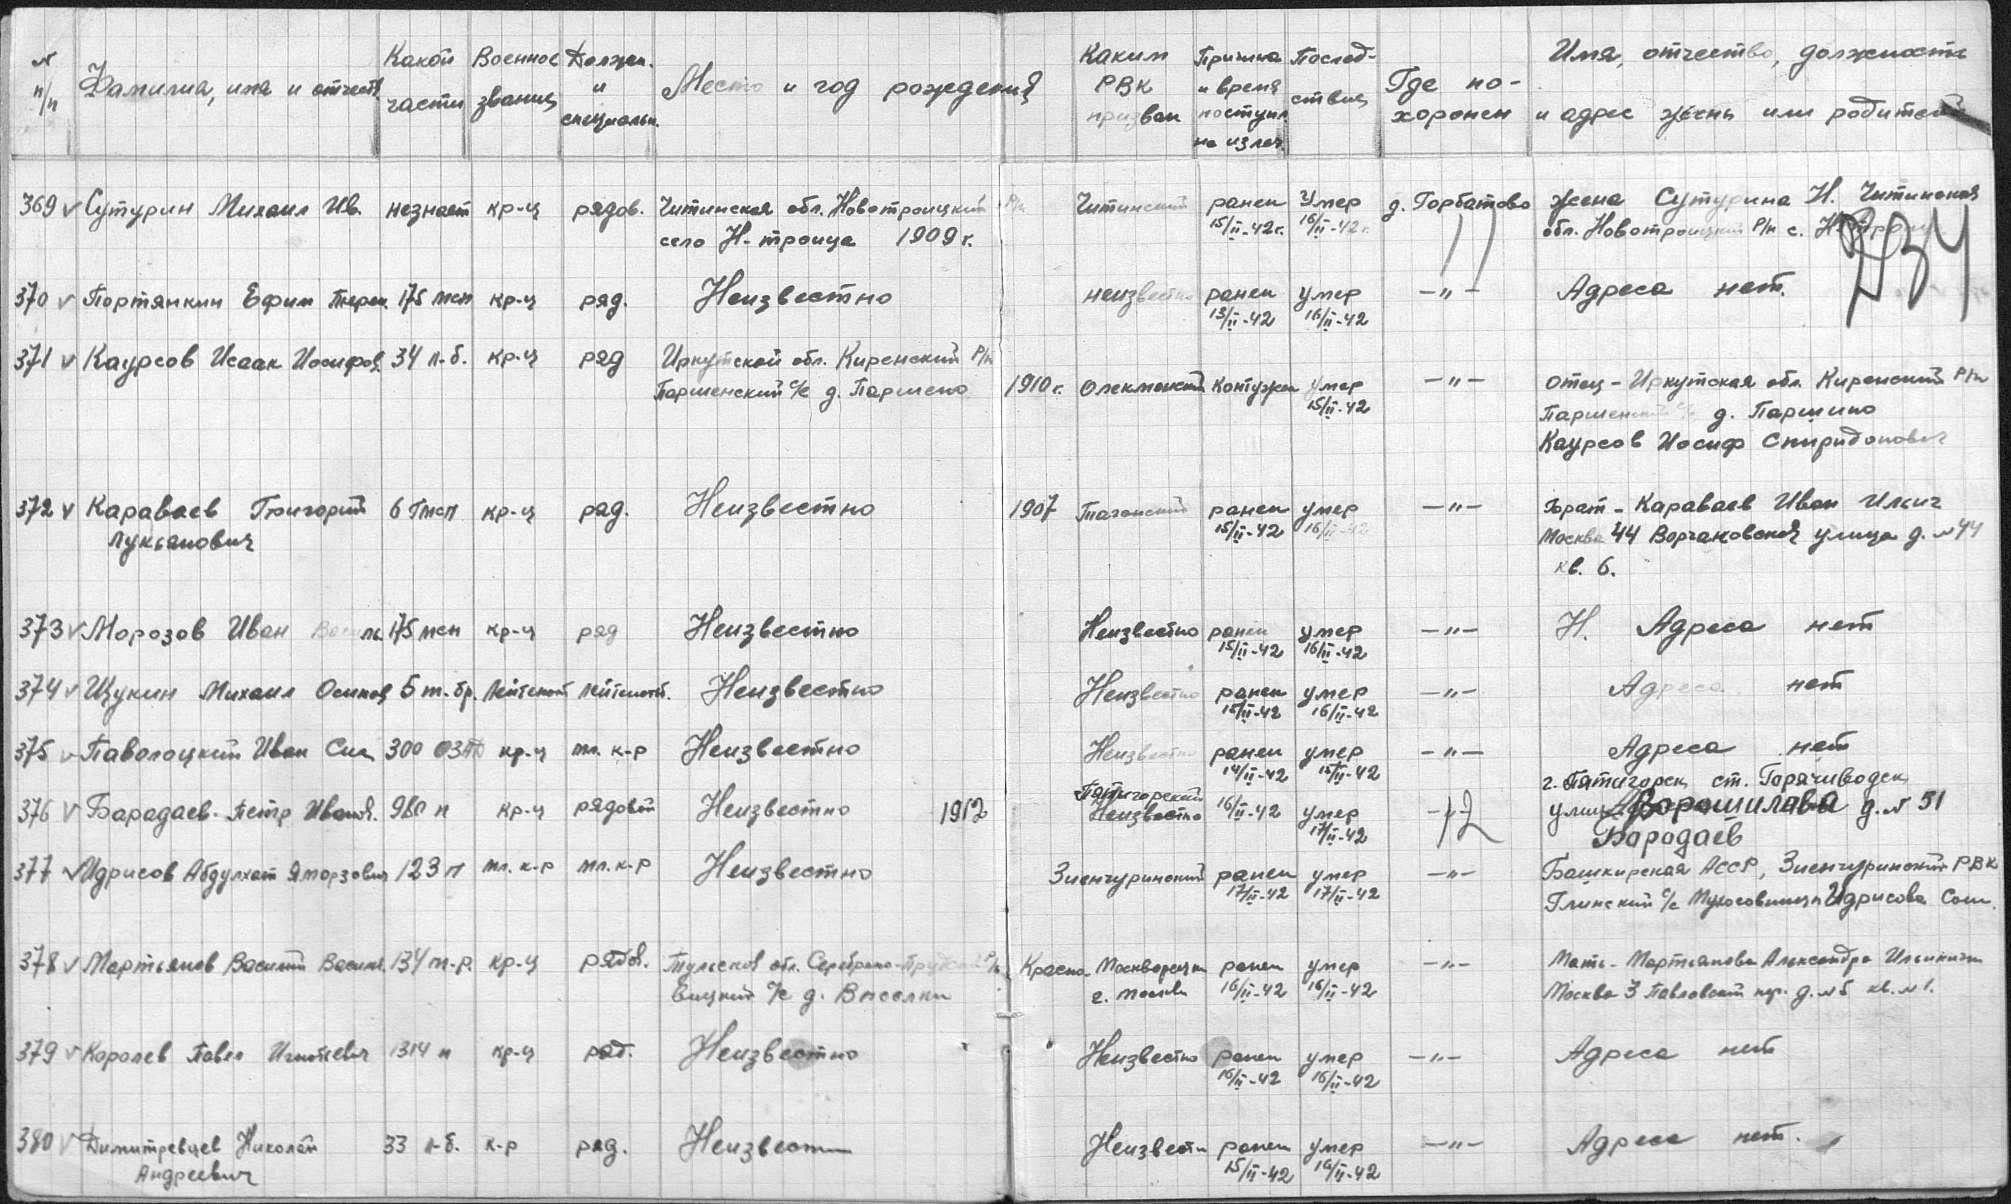 № п/п Фамилия, имя и отчеств Какой части Военное звание Должн. и специальн. Место и год рождения Каким РВК призван Причина и время поступл. на излеч. Последствия Где похоронен Имя, отчество, должность и адрес жены или родителей
369 v Сутурин Михаил Ив. незнает кр-ц рядов. Читинская обл. Новотроицкий р/н Читинский ранен умер д. Горбатово жена Сутурина Н. Читинская
село Н-троица 1909 г. 15/II-42г. 16/II-42г. обл. Новотроицкий р/н с.
370 v Портянкин Ефим 175 мсп кр-ц ряд. Неизвестно неизвестно ранен умер -"- Адреса нет.
13/II-42 16/II-42
371 v Каурсов Исаак Иосифов. 34 л-б. кр-ц ряд Иркутской обл. Киренский р/н
Паршенский с/с д. Паршено 1910 г. Олекминский Контужен умер -"- отец - Иркутская обл. Киренский р/н
15/II-42 Паршенский с/с д. Паршино
Каурсов Иосиф Спиридонович
372 v Караваев Григорий 6 Гмсп кр-ц ряд. Неизвестно 1907 Таганский ранен умер -"- брат - Караваев Иван Ильич
Лукьянович 15/II-42 16/II-42 Москва 44 улица д. №44
кв. 6.
373 v Морозов Иван Василь. 175 мсп кр-ц ряд Неизвестно Неизвестно ранен умер -"- Н. Адреса нет
15/II-42 16/II-42
374 v Щукин Михаил Осипов 5 т. бр. Лейтенант лейтенант. Неизвестно Неизвестно ранен умер -"- Адреса нет
15/II-42 16/II-42
375 v Паволоцкий Иван 300 кр-ц мл. к-р Неизвестно Неизвестно ранен умер -"- Адреса нет
14/II-42 15/II-42
г. Пятигорск, ст. Горячиводск
Пятигорский
376 v Барадаев Петр Иванов. п кр-ц рядовой Неизвестно 1912 Неизвестно 16/II-42 умер -"- улица Ворошилова д. № 51
17/II-42 Бородаев
377 v Идрисов Абдулхат 123 п мл. к-р мл. к-р Неизвестно Зиенчуринский ранен умер -"- Башкирская АССР, Зиенчуринский РВК
17/II-42 17/II-42 Глинский с/с Идрисова
378 v Мартьянов Василий Василь. 134 м-р. кр-ц рядов. Тульской обл. Серебрено-Прудский р/н Красно-Москворецки ранен умер -"- Мать - Мартьянова Александра Ильинична
с/с д. Выселки г. Москвы 16/II-42 16/II-42 Москва 3 Павловский пер. д. №5 кв. №1.
379 v Королев Павел Игнатьевич 1314 п кр-ц ряд. Неизвестно Неизвестно ранен умер -"- Адреса нет
16/II-42 16/II-42
380 v Димитревцев Николай 33 л-б. к-р ряд. Неизвестн Неизвестн ранен умер -"- Адреса нет.
Андреевич 15/II-42 16/II-42